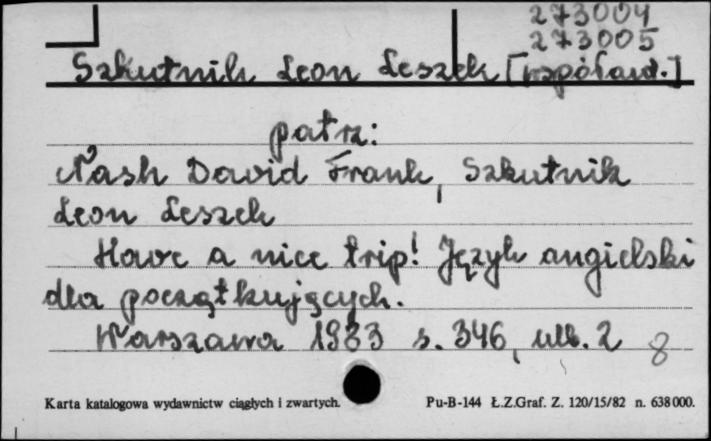 273004
273005
Szkutnik Leon Leszek [współaut.]
patrz:
Nash David Frank, Szkutnik
Leon Leszek
Have a nice trip! Język angielski
dla początkujących.
Warszawa 1983 s. 346, ulb. 2 8
Karta katalogowa wydawnictw ciągłych i zwartych. Pu-B-144 Ł.Z.Graf. Z. 120/15/82 n. 638000.